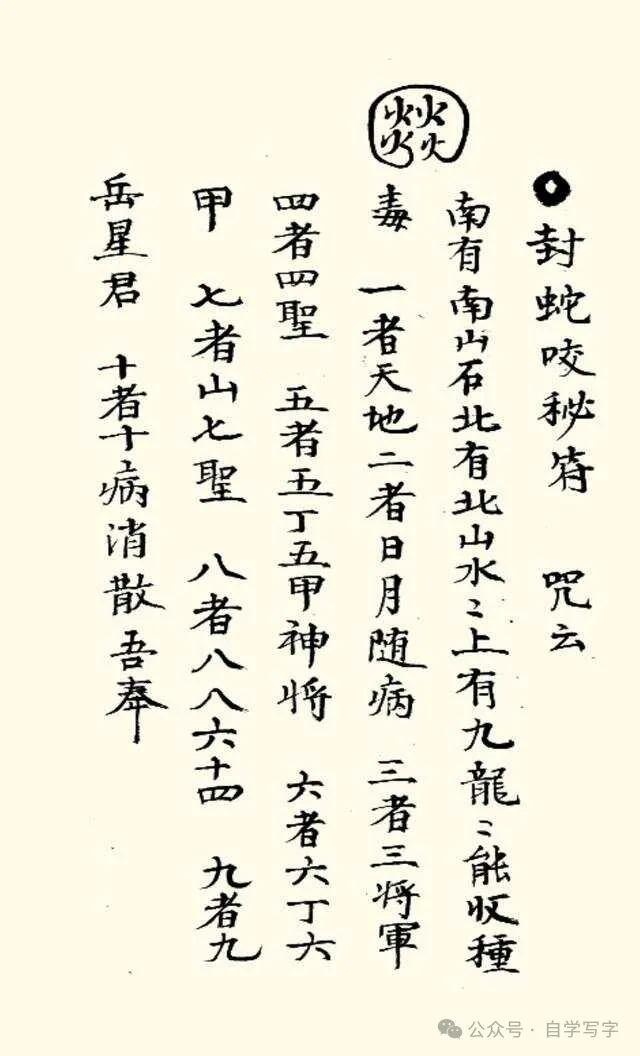 封蛇咬秘符 咒云
南有南山石北有北山水〻上有九龍〻能收種
毒 一者天地二者日月随病 三者三将軍
四者四聖 五者五丁五甲神将 六者六丁六
甲 七者山七聖 八者八八六十四 九者九
岳星君 十者十病消散吾奉
火火火火
公众号·自学写字